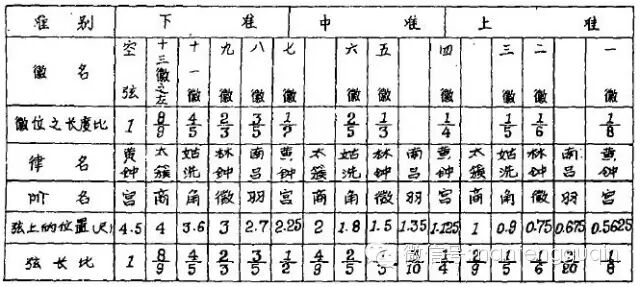 准别 下准 中准 上准
徽名 空弦 十三徽之左 十一徽 九徽 八徽 七徽 六徽 五徽 四徽 三徽 二徽 一徽
徽位之长度比 1 8/9 4/5 2/3 3/5 1/2 2/5 1/3 1/4 1/5 1/6 1/8
律名 黄钟 太簇 姑洗 林钟 南吕 黄钟 太簇 姑洗 林钟 南吕 黄钟 太簇 姑洗 林钟 南吕 黄钟
阶名 宫 商 角 徵 羽 宫 商 角 徵 羽 宫 商 角 徵 羽 宫
弦上的位置(尺) 4.5 4 3.6 3 2.7 2.25 2 1.8 1.5 1.35 1.125 1 0.9 0.75 0.675 0.5625
弦长比 1 8/9 4/5 2/3 3/5 1/2 4/9 2/5 1/3 10 4 9 5 6 20 1/8
微信号: